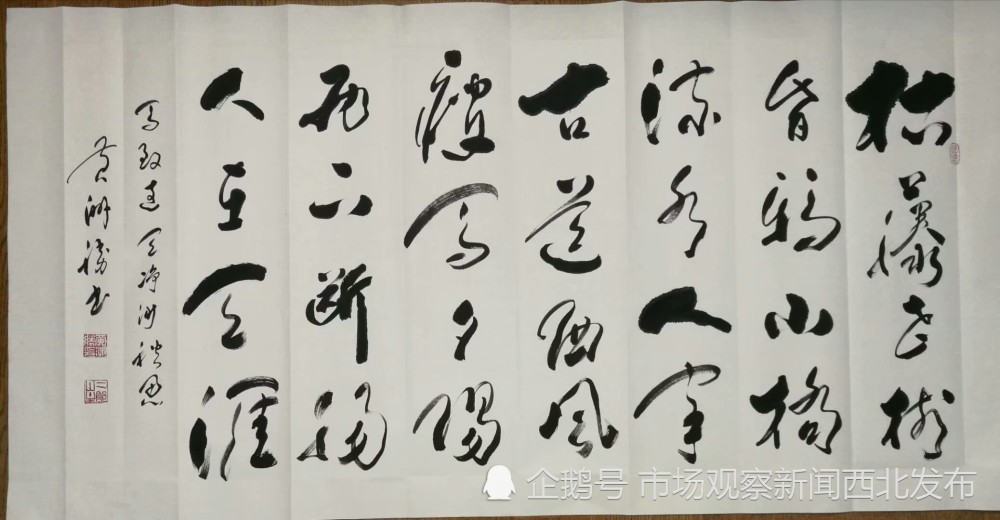 枯藤老树
昏鸦小桥
流水人家
古道西风
瘦马夕阳
西下断肠
人在天涯
马致远天净沙秋思
黄洲胜书
企鹅号 市场观察新闻西北发布